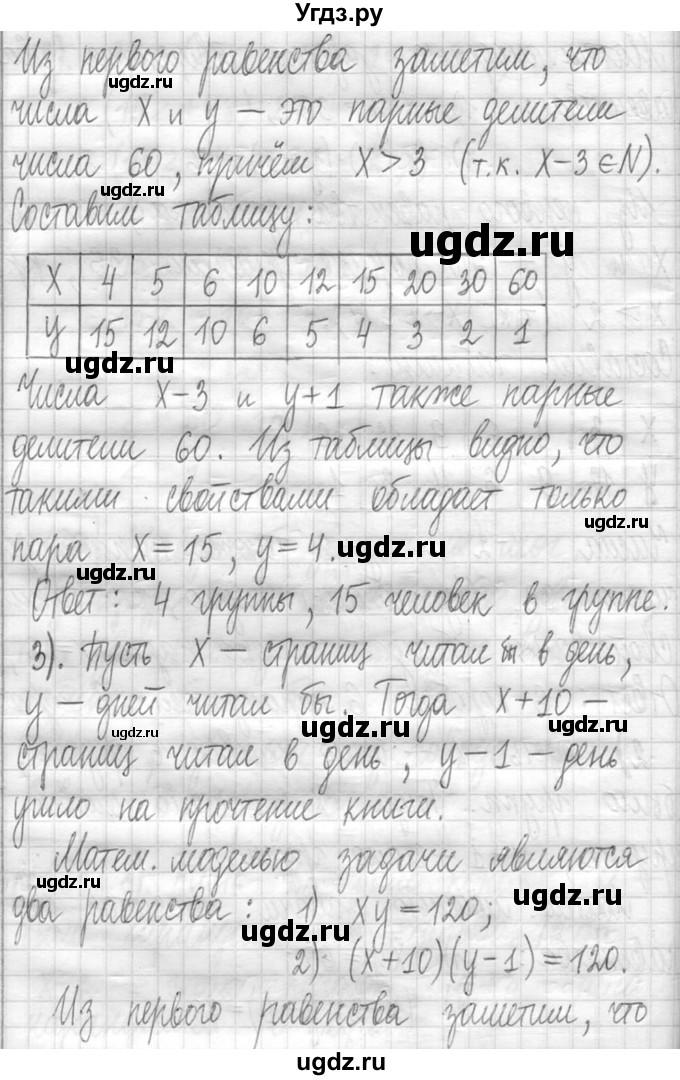 Угдз.ру
Из первого равенства заметим, что
числа x и y — это парные делители
числа 60, причём x > 3 (т.к. x-3 ∈ N).
ugdz.ru
ugdz.ru
Составим таблицу:
ugdz.ru
x 4 5 6 10 12 15 20 30 60
y 15 12 10 6 5 4 3 2 1
ugdz.ru
Числа x-3 и y+1 также парные
делители 60. Из таблицы видно, что
такими свойствами обладает только
ugdz.ru
пара x = 15, y = 4.
ugdz.ru
ugdz.ru
Ответ: 4 группы, 15 человек в группе.
3). Пусть x — страниц читал бы в день,
y — дней читал бы. Тогда x+10 —
ugdz.ru
ugdz.ru
ugdz.ru
страниц читал в день, y-1 — день
ушло на прочтение книги.
Матем. моделью задачи являются
ugdz.ru
ugdz.ru
два равенства: 1) xy = 120;
ugdz.ru
2) (x+10)(y-1) = 120.
Из первого равенства заметим, что
ugdz.ru